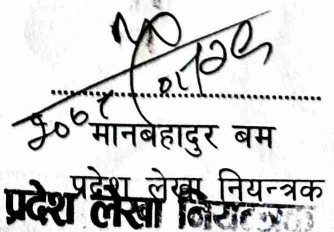 मानबहादुर बम
प्रदेश लेखा नियन्त्रक
प्रदेश लेखा नियन्त्रक